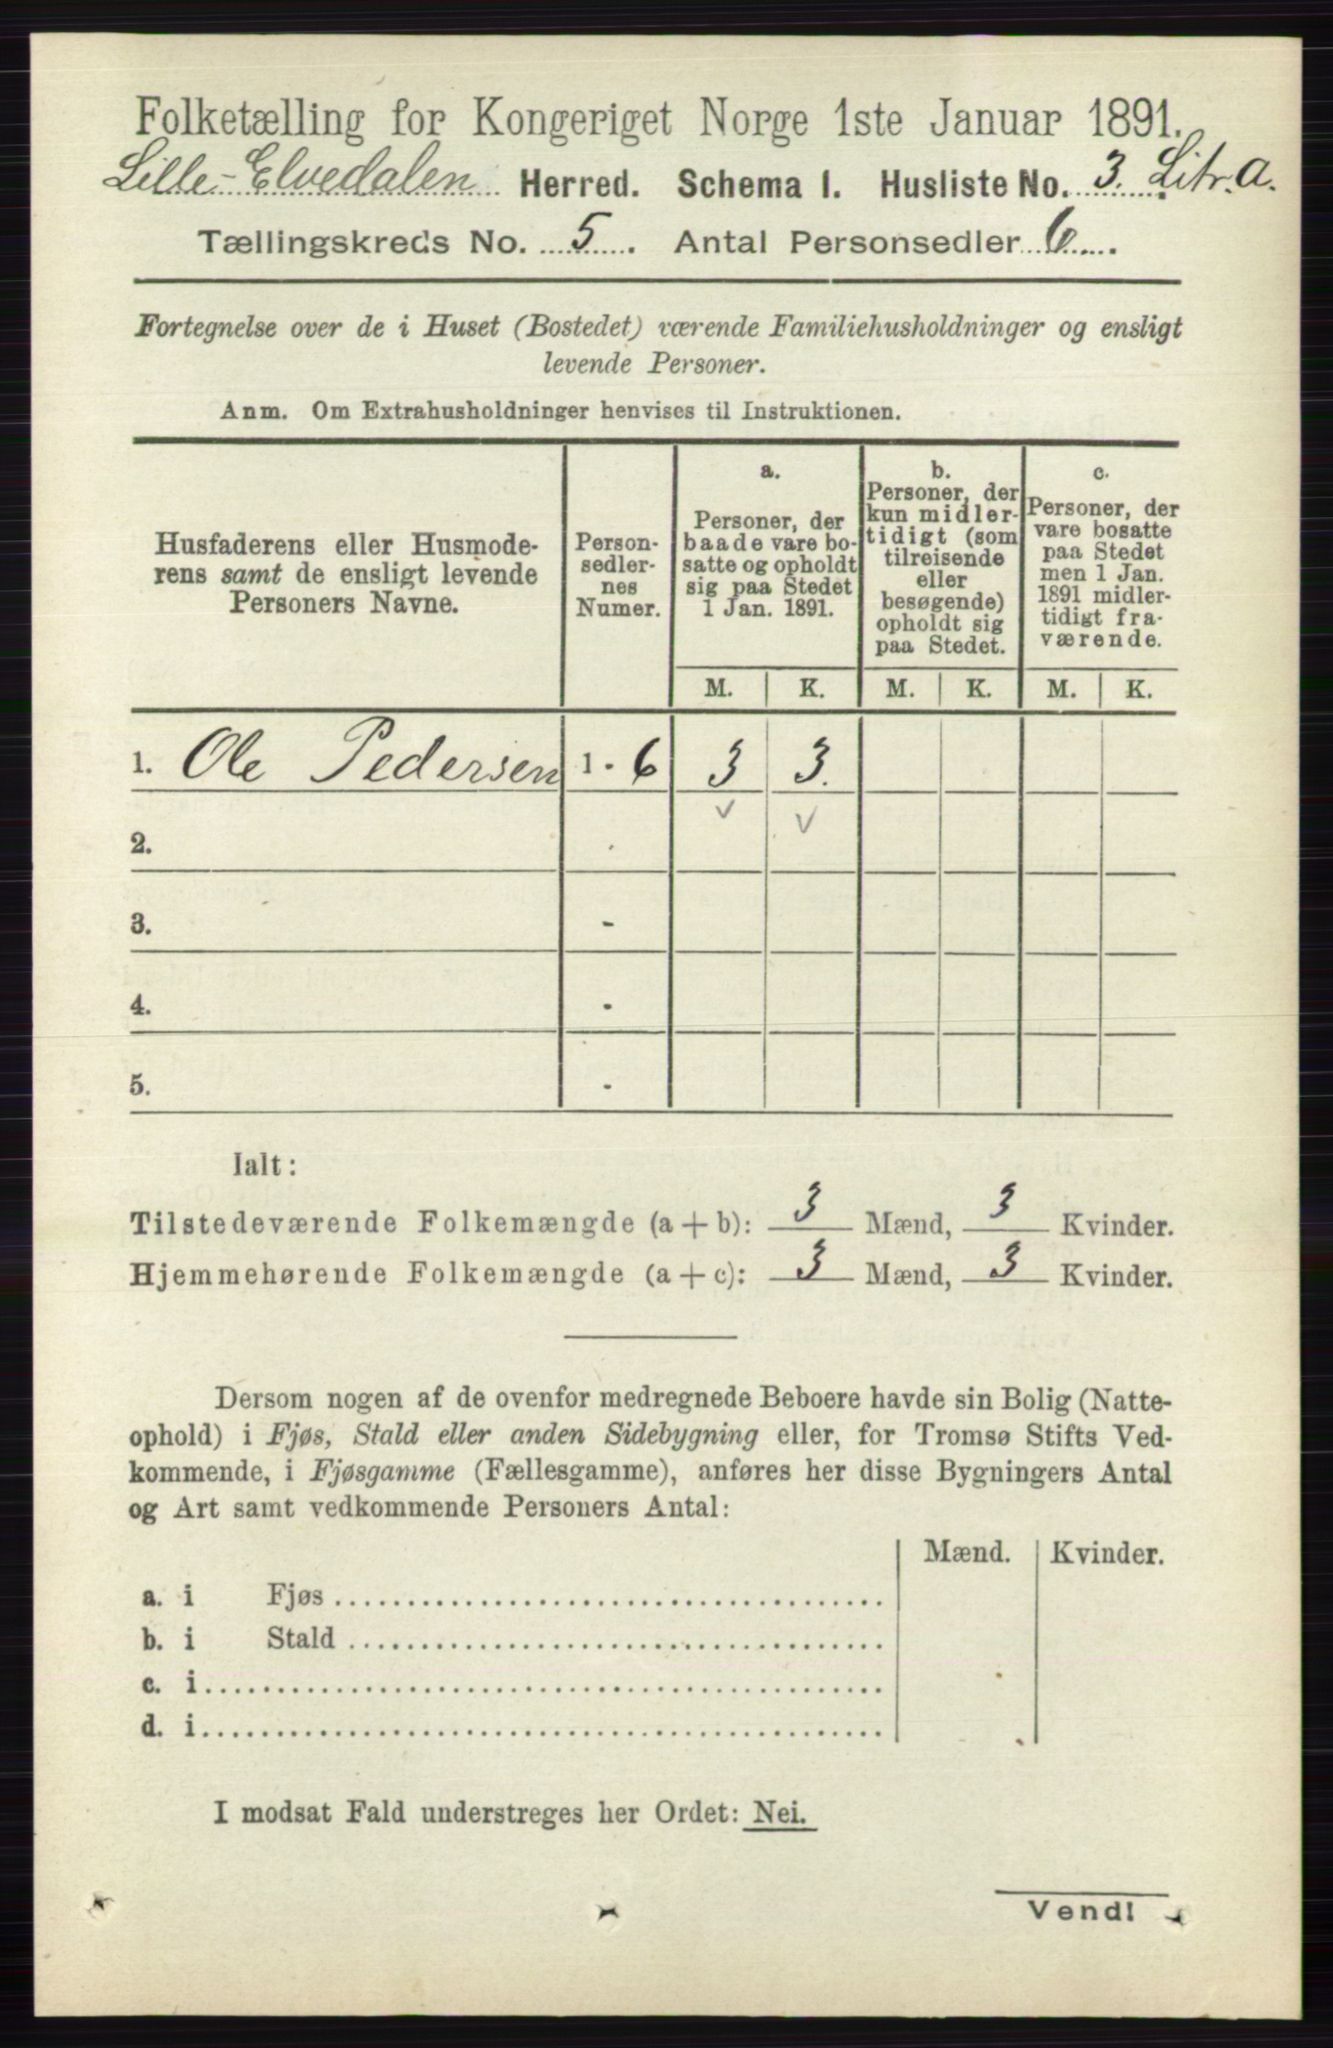 Folketælling for Kongeriget Norge 1ste Januar 1891.
Lille-Elvedalen Herred. Schema I. Husliste No. 3. Litr. a.
Tællingskreds No. 5. Antal Personsedler 6.
Fortegnelse over de i Huset (Bostedet) værende Familiehusholdninger og ensligt
levende Personer.
Anm. Om Extrahusholdninger henvises til Instruktionen.
Husfaderens eller Husmode-
rens samt de ensligt levende
Personers Navne.
Person-
sedler-
nes
Numer.
a.
Personer, der
baade vare bo-
satte og opholdt
sig paa Stedet
1 Jan. 1891.
b.
Personer, der
kun midler-
tidigt (som
tilreisende
eller
besøgende)
opholdt sig
paa Stedet.
c.
Personer, der
vare bosatte
paa Stedet
men 1 Jan.
1891 midler-
tidigt fra-
værende.
M. K. M. K. M. K.
1. Ole Pedersen 1 - 6 3 3.
2. -
3. -
4. -
5. -
Ialt:
Tilstedeværende Folkemængde (a + b): 3 Mænd, 3 Kvinder.
Hjemmehørende Folkemængde (a + c): 3 Mænd, 3 Kvinder.
Dersom nogen af de ovenfor medregnede Beboere havde sin Bolig (Natte-
ophold) i Fjøs, Stald eller anden Sidebygning eller, for Tromsø Stifts Ved-
kommende, i Fjøsgamme (Fællesgamme), anføres her disse Bygningers Antal
og Art samt vedkommende Personers Antal:
Mænd. Kvinder.
a. i Fjøs
b. i Stald
c. i
d. i
I modsat Fald understreges her Ordet: Nei.
Vend!